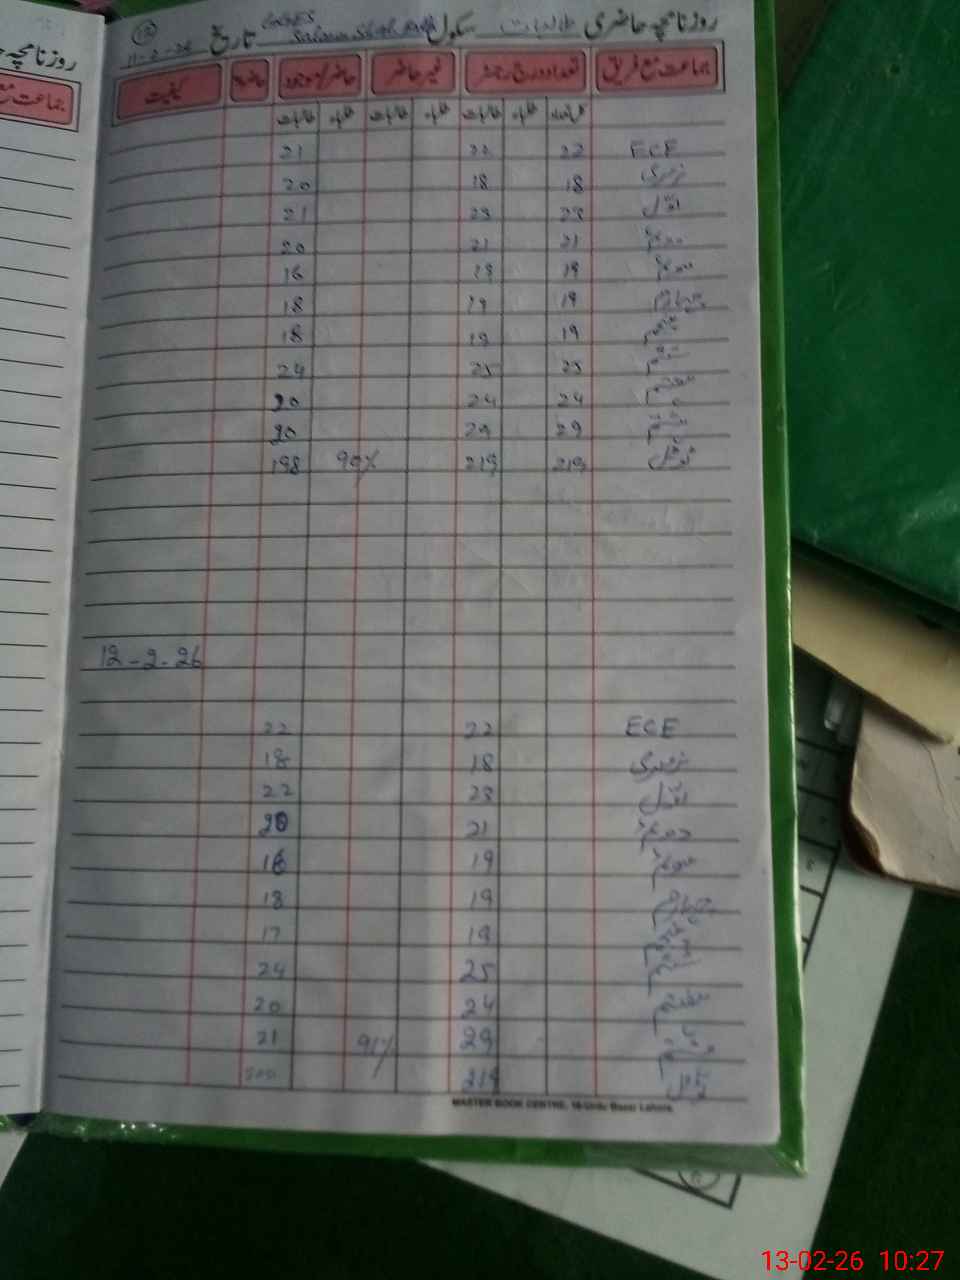 روزنامچہ حاضری طالبات سکول GGES تاریخ 11-2-26
جماعت مع فریق تعداد درج رجسٹر غیر حاضر حاضر/موجود کیفیت
کل تعداد طلباء طالبات طلباء طالبات طلباء طالبات
ECE 22 22 21
نرسری 18 18 20
اول 23 23 21
دوم 21 21 20
سوم 19 19 16
چہارم 19 19 18
پنجم 19 19 18
ششم 25 25 24
ہفتم 24 24 20
ہشتم 29 29 20
ٹوٹل 219 219 198
12-2-26
ECE 22 22
نرسری 18 18
اول 23 22
دوم 21 20
سوم 19 16
چہارم 19 18
پنجم 19 17
ششم 25 24
ہفتم 24 20
ہشتم 29 91% 21
ٹوٹل 219
MASTER BOOK CENTRE, 16-Urdu Bazar Lahore.
روزنامچہ
جماعت مع
13-02-26 10:27